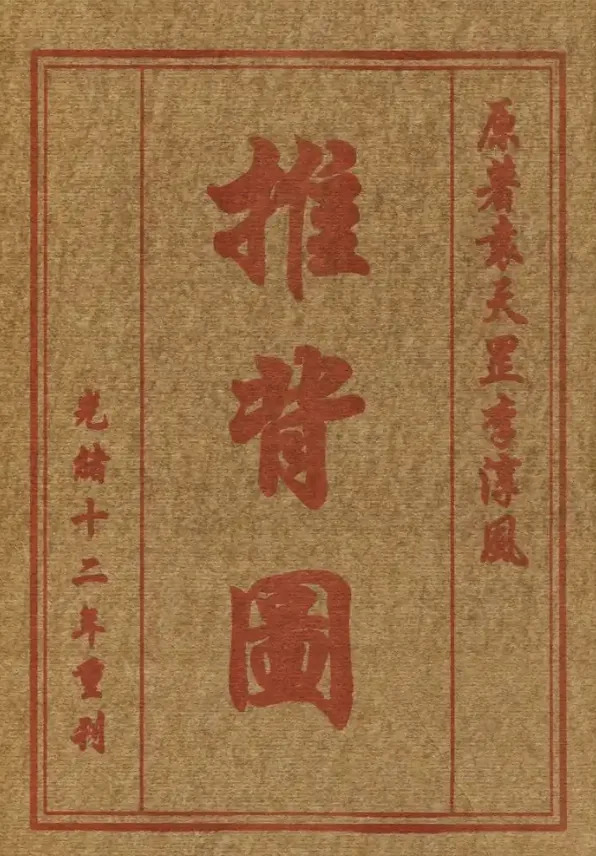 原著袁天罡李淳風
推背圖
光緒十二年重刊